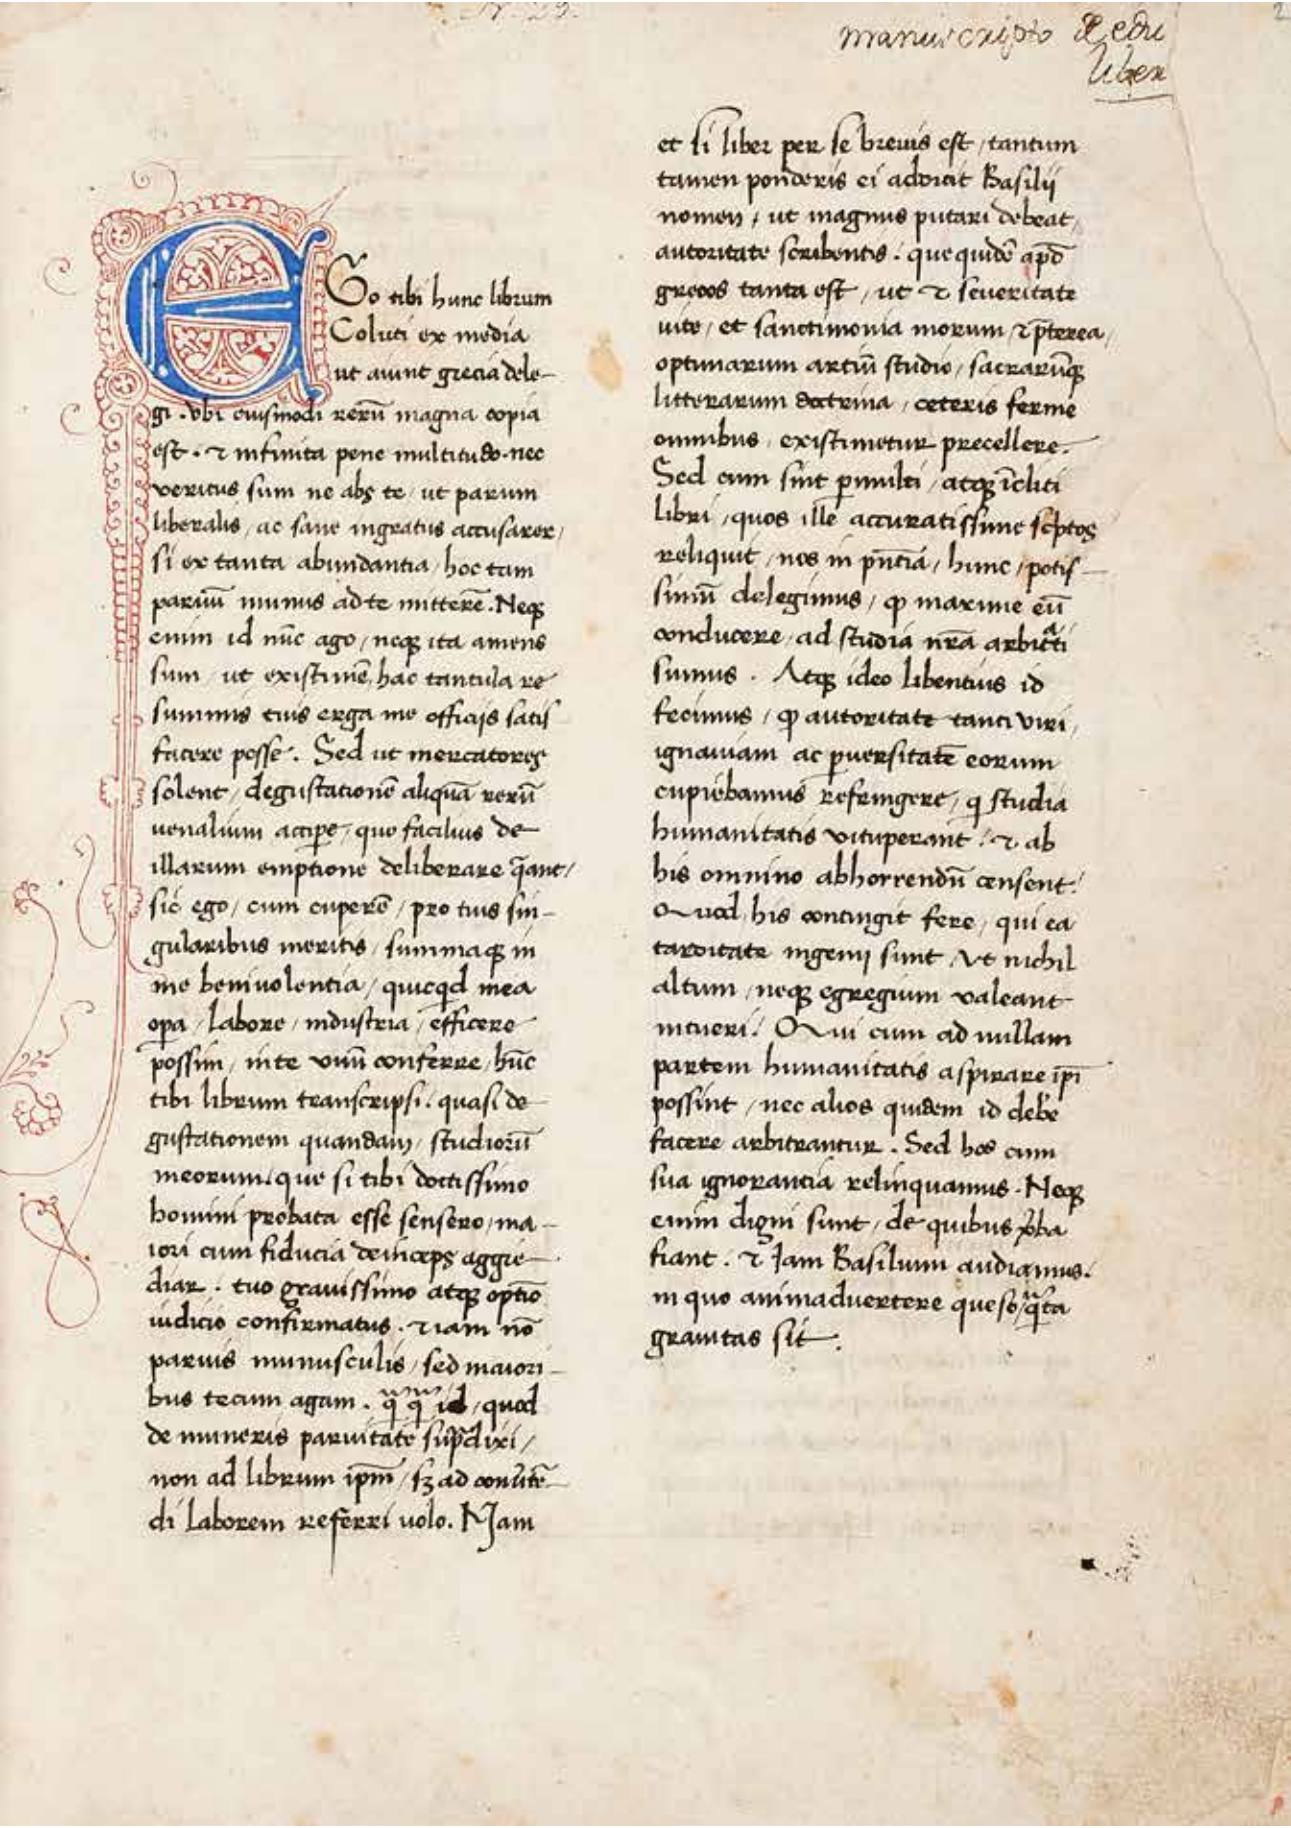 manuscripto De edu
liber
2
EGo tibi hunc librum
Coluci ex media
ut aiunt grecia dele-
gi. vbi eiusmodi rerū magna copia
est. ⁊ infinita pene multitudo. nec
veritus sum ne abs te / ut parum
liberalis / ac sane ingratus accusarer /
si ex tanta abundantia / hoc tam
paruū munus ad te mitterē. Neqꝫ
enim id nūc ago / neqꝫ ita amens
sum / ut existimē hac tantula re
summis tuis erga me officijs satis
facere posse. Sed ut mercatores
solent / degustationē aliquā rerū
uenalium accipe / quo facilius de
illarum emptione deliberare q̄ant /
sic ego / cum cuperē / pro tuis sin-
gularibus meritis / summaqꝫ in
me beniuolentia / quicqd mea
opa / labore / industria / efficere
possim / in te vnū conferre / hūc
tibi librum transcripsi. quasi de
gustationem quandam / studiorū
meorum. que si tibi doctissimo
homini probata esse sensero / ma-
iori cum fiducia deinceps aggre-
diar. tuo grauissimo atqꝫ optīo
iudicio confirmatus. ⁊ iam nō
paruis munusculis / sed maiori-
bus tecum agam. q̄q̄ id / quod
de muneris paruitate sup̄dixi /
non ad librum ip̄m / sꝫ ad conu̓tē-
di laborem referri uolo. Nam
et si liber per se breuis est / tantum
tamen ponderis ei adicit Basilij
nomen / ut magnus putari debeat /
autoritate scribentis. que quidē apd̄
grecos tanta est / ut ⁊ seueritate
uite / et sanctimonia morum / ⁊ p̄terea /
optimarum artiū studio / sacrarūqꝫ
litterarum doctrina / ceteris ferme
omnibus / existimetur precellere.
Sed cum sint ꝑmulti / atqꝫ īcliti
libri / quos ille accuratissime sc̓ptos
reliquit / nos in p̄ntiā / hunc / potis-
simū delegimus / ꝙ maxime eū
conducere / ad studia nr̄a arbit̓ti
sumus. Atqꝫ ideo libentius id
fecimus / ꝙ autoritate tanti viri /
ignauiam ac ꝑuersitatē eorum
cupiebamus refringere / q̓ studia
humanitatis vituperant. ⁊ ab
his omnino abhorrendū censent.
Quod his contingit fere / qui ea
tarditate ingenij sunt / Vt nichil
altum / neqꝫ egregium valeant
intueri. Qui cum ad nullam
partem humanitatis aspirare ip̄i
possint / nec alios quidem id debe̓
facere arbitrantur. Sed hos cum
sua ignorantia relinquamus. Neqꝫ
enim digni sunt / de quibus v̓ba
fiant. ⁊ Jam Basilium audiamus.
in quo animaduertere queso / q̄ta
grauitas sit.